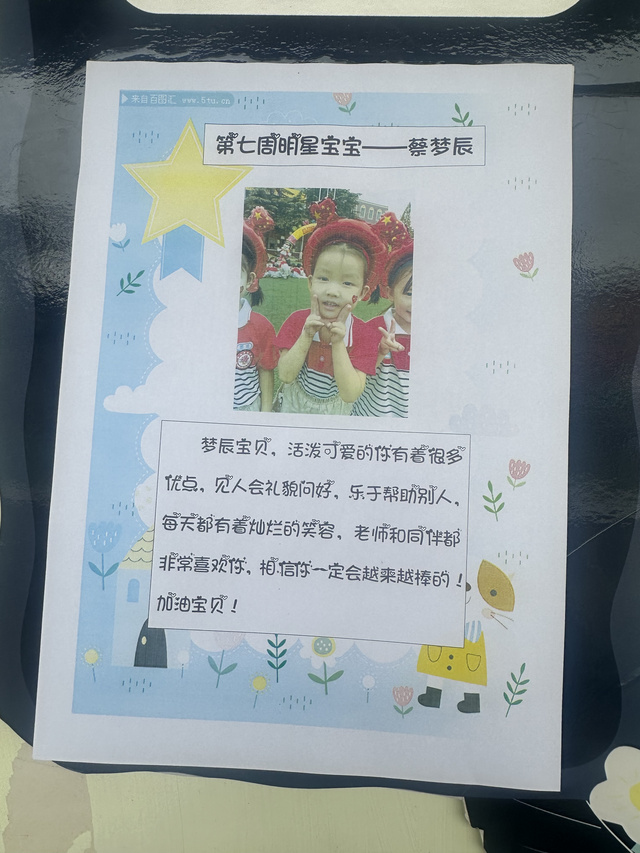 来自百图汇 www.5tu.cn
第七周明星宝宝——蔡梦辰
梦辰宝贝，活泼可爱的你有着很多
优点，见人会礼貌问好，乐于帮助别人，
每天都有着灿烂的笑容，老师和同伴都
非常喜欢你，相信你一定会越来越棒的！
加油宝贝！